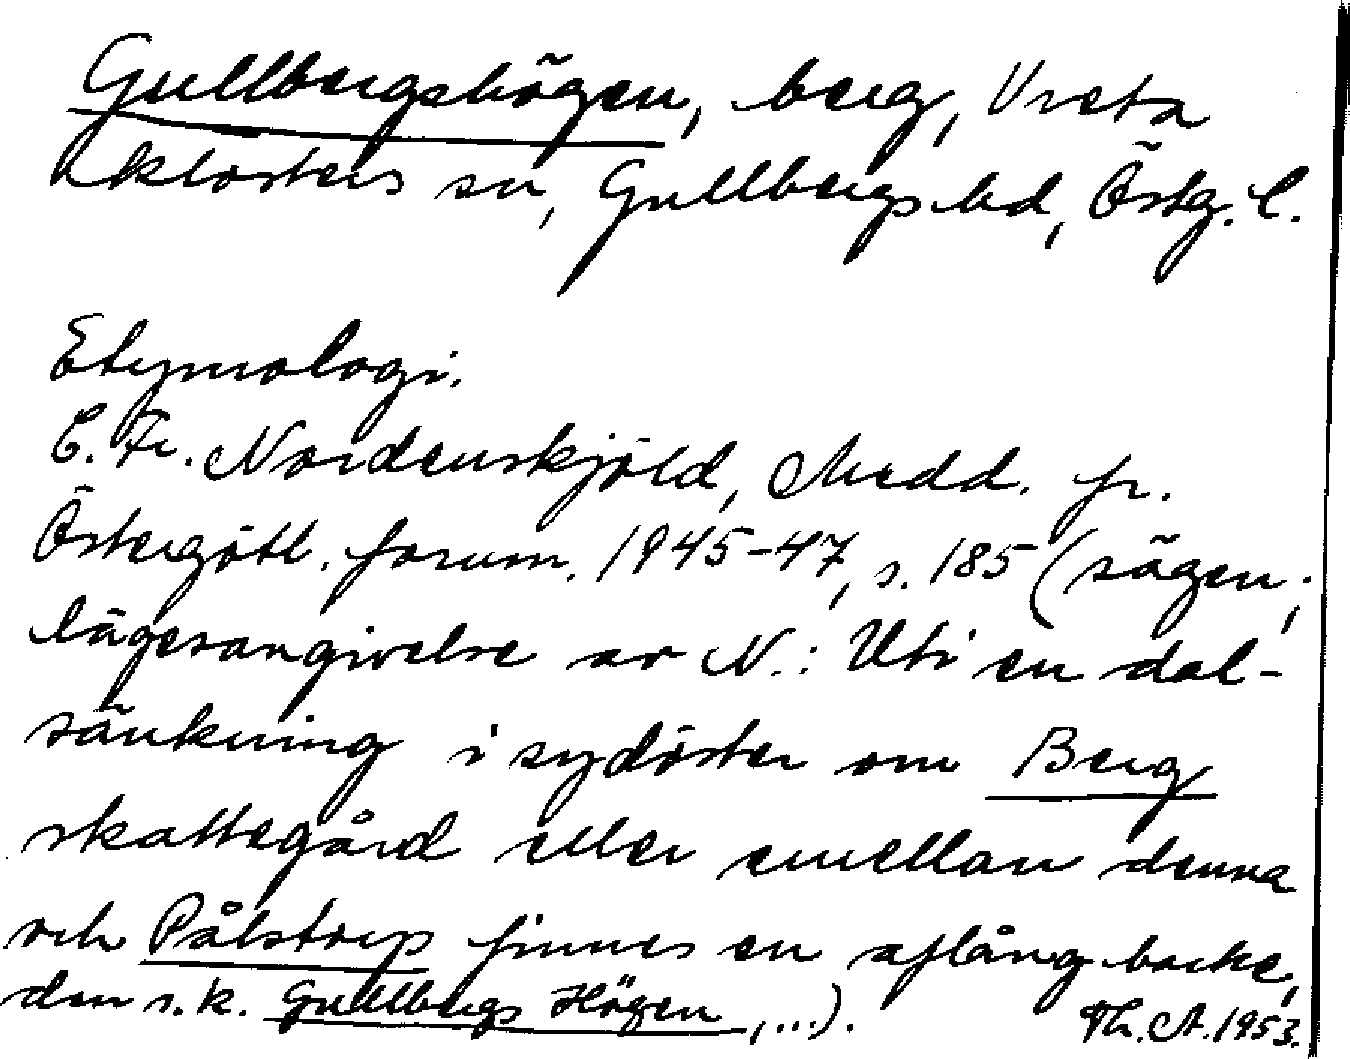 Gullbergshögen, berg, Vreta
klosters sn, Gullbergs hd, Östg. l.
Etymologi.
C. Fr. Nordenskjöld, Medd. fr.
Östergötl. fornm. 1945-47, s. 185 (sägen;
lägesangivelse av N.: Uti en dal-
sänkning i sydöster om Berg
skattegård eller emellan denna
och Pålstorp finnes en aflång backe,
den s.k. Gullbergs Högen, ...).
Th. A. 1953.